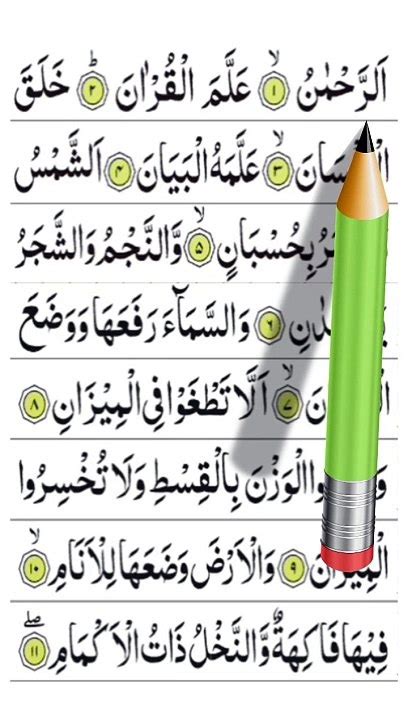 اَلرَّحْمٰنُ ۙ﴿۱﴾ عَلَّمَ الْقُرْاٰنَ ؕ﴿۲﴾ خَلَقَ
﴿۳﴾ۙ عَلَّمَهُ الْبَيَانَ ﴿۴﴾ اَلشَّمْسُ
بِحُسْبَانٍ ۙ﴿۵﴾ وَّالنَّجْمُ وَالشَّجَرُ
﴿۶﴾ وَالسَّمَآءَ رَفَعَهَا وَوَضَعَ
ۙ﴿۷﴾ اَلَّا تَطْغَوْا فِى الْمِيْزَانِ ﴿۸﴾
الْوَزْنَ بِالْقِسْطِ وَلَا تُخْسِرُوا
الْمِيْزَانَ ﴿۹﴾ وَالْاَرْضَ وَضَعَهَا لِلْاَنَامِ ۙ﴿۱۰﴾
فِيْهَا فَاكِهَةٌ وَّالنَّخْلُ ذَاتُ الْاَكْمَامِ ۖ﴿۱۱﴾